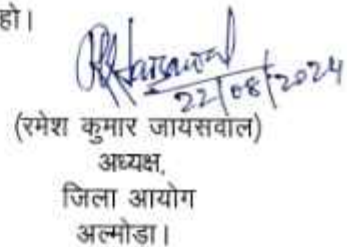 हो।
22/08/2024
(रमेश कुमार जायसवाल)
अध्यक्ष,
जिला आयोग
अल्मोडा।